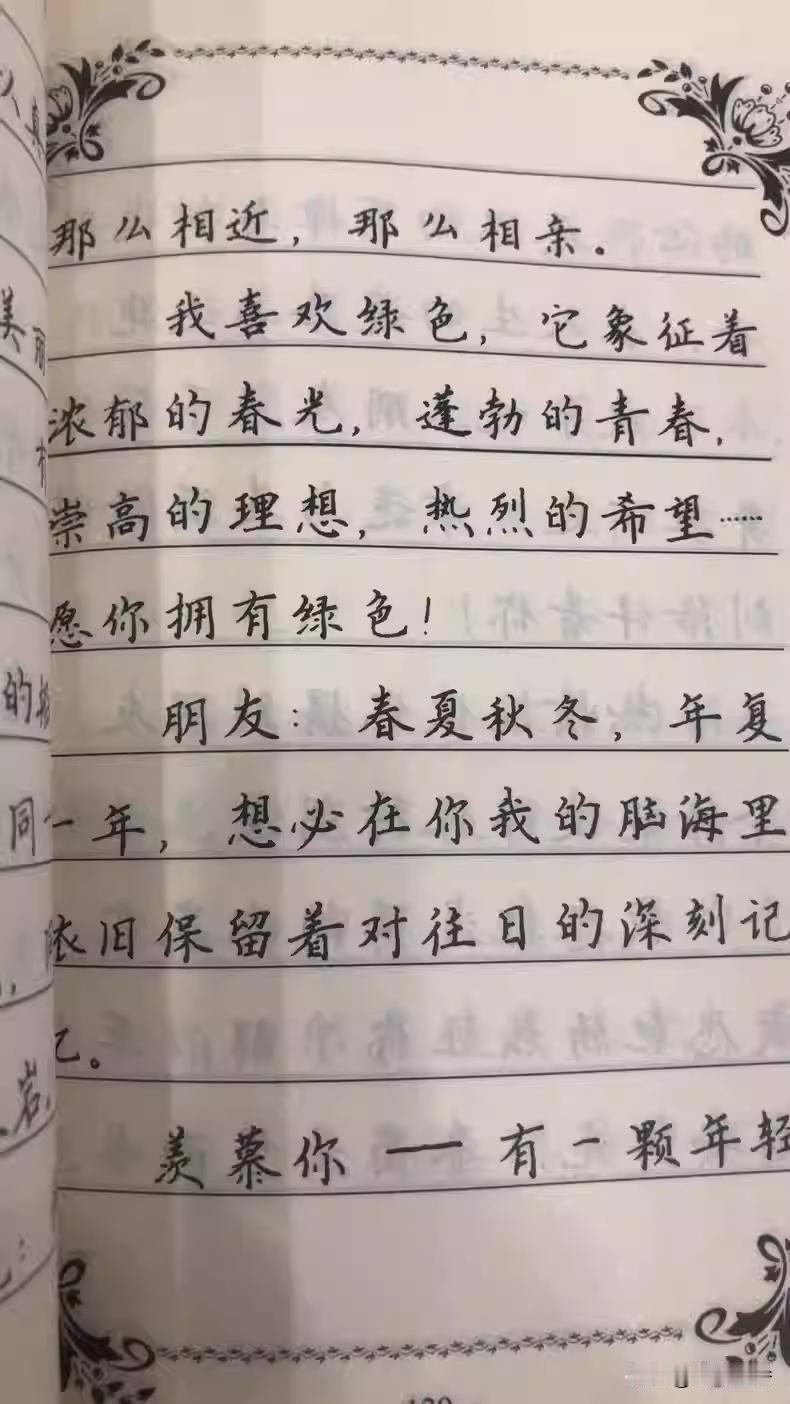 那么相近，那么相亲。
我喜欢绿色，它象征着
浓郁的春光，蓬勃的青春，
崇高的理想，热烈的希望……
愿你拥有绿色！
朋友：春夏秋冬，年复
一年，想必在你我的脑海里
依旧保留着对往日的深刻记
忆。
羡慕你——有一颗年轻